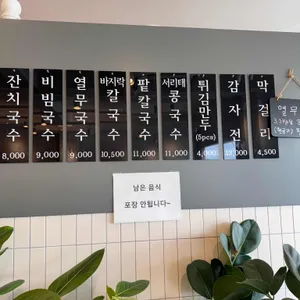 잔치국수
8,000
비빔국수
9,000
열무국수
9,000
바지락
칼국수
10,500
팥칼국수
11,000
서리태
콩국수
11,000
튀김만두
(5pcs)
4,000
감자전
막걸리
4,500
열무
남은 음식
포장 안됩니다~